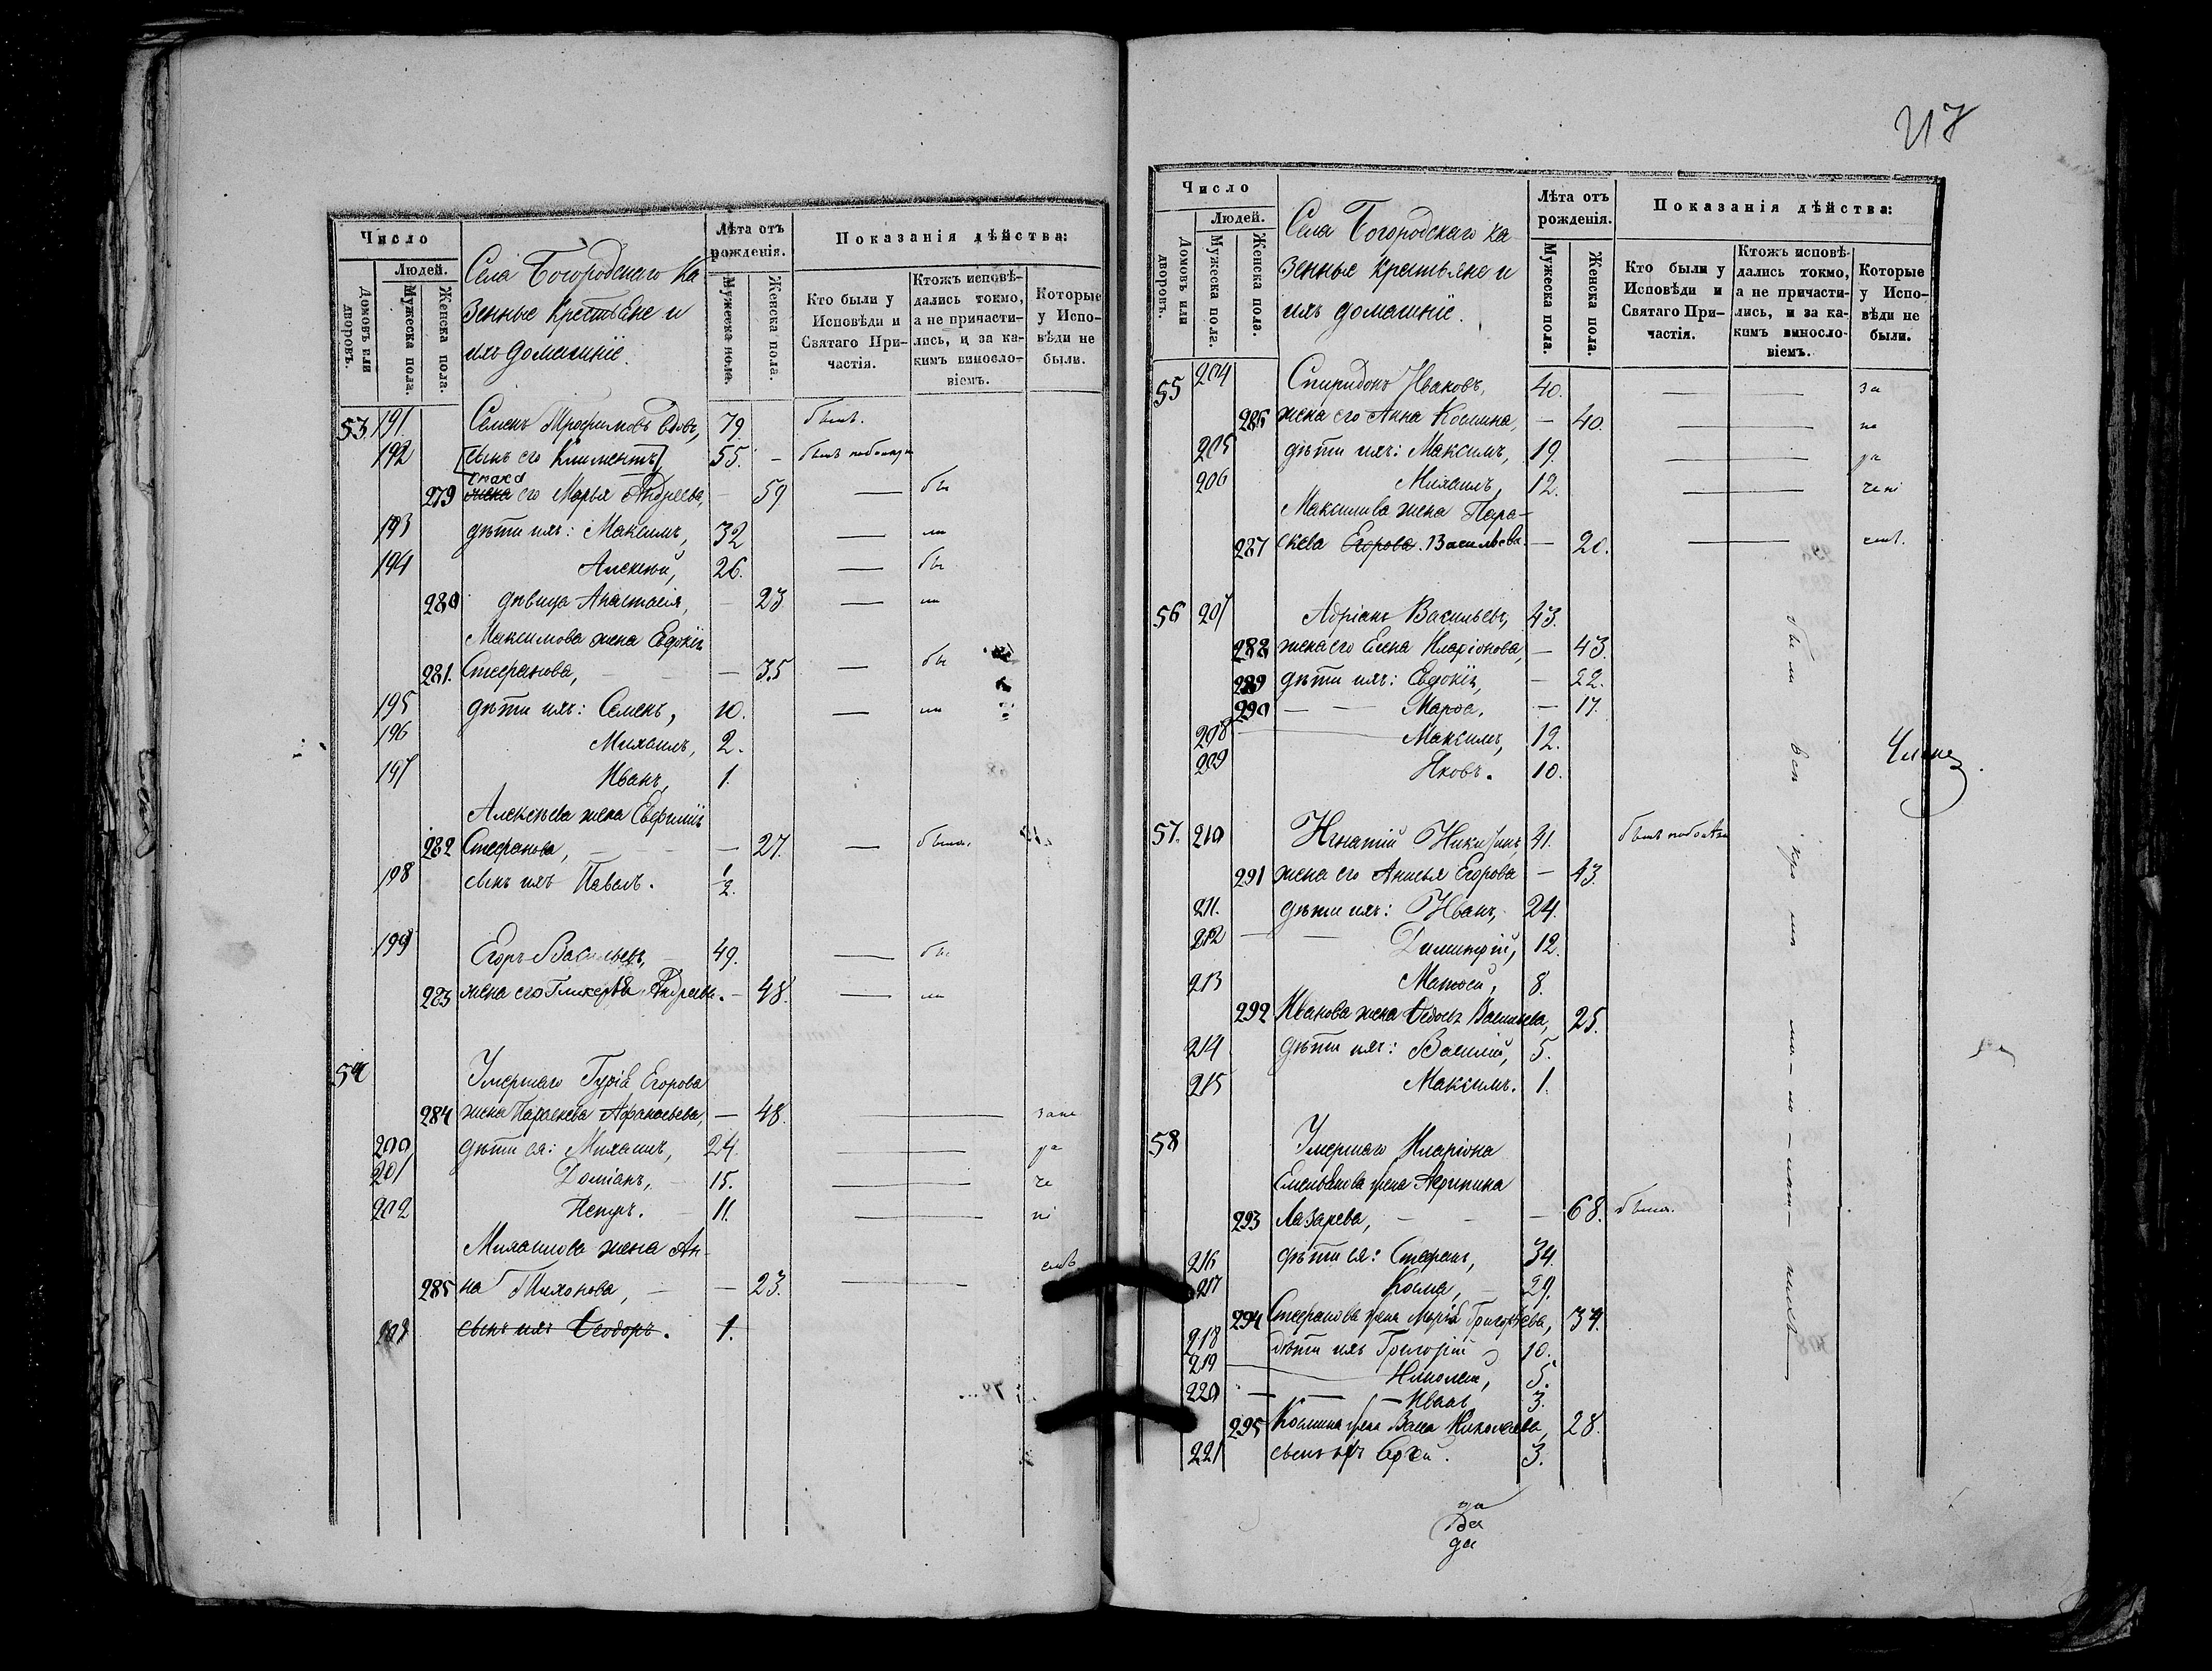 Число
Людей.
Домовъ или дворовъ.
Мужеска пола.
Женска пола.
Села Богородскаго ка
зенные крестьяне и
ихъ домашніе.
Лѣта отъ рожденія.
Мужеска пола.
Женска пола.
Показанія дѣйства:
Кто были у Исповѣди и Святаго Причастія.
Ктожъ исповѣдались токмо, а не причастились, и за какимъ винословіемъ.
Которые у Исповѣди не были.
53. 191. Семенъ Трофимовъ вдовъ, 79. былъ.
192 [сынъ его Климентъ] 55. - былъ
снаха
279 жена его Марья Андреева, - 59 — бы
193 дѣти ихъ: Максимъ, 32 — ли
194 Алексѣй, 26. — бы
280 дѣвица Анастасія, - 23 — ли
Максимова жена Евдокія
281. Стефанова, — 35 — бы
195 дѣти ихъ: Семенъ, 10. — ли
196 Михаилъ, 2.
197 Иванъ, 1.
Алексѣева жена Евфимія
282 Стефанова, — 27. — была.
198 сынъ ихъ Павелъ. 1/2.
199 Егоръ Васильевъ, 49. — бы
283 жена его Гликерія Андреева. - 48. — ли
54 Умершаго Гурія Егорова
284 жена Параскева Афанасьева, — 48. — запе
200 дѣти ея: Михаилъ, 24. — ра
201 Доміанъ, 15. — че
202 Петръ. 11. — ні
Михаилова жена Ан-
285 на Тихонова, — 23. — емъ
203 сынъ ихъ Ѳеодоръ. 1.
217
Число
Людей.
Домовъ или дворовъ.
Мужеска пола.
Женска пола.
Села Богородскаго ка
зенные крестьяне и
ихъ домашніе.
Лѣта отъ рожденія.
Мужеска пола.
Женска пола.
Показанія дѣйства:
Кто были у Исповѣди и Святаго Причастія.
Ктожъ исповѣдались токмо, а не причастились, и за какимъ винословіемъ.
Которые у Исповѣди не были.
55 204 Спиридонъ Ивановъ, 40. — за
286 жена его Анна Космина, — 40. — пе
205 дѣти ихъ: Максимъ, 19. — ра
206 Михаилъ, 12. — чені
Максимова жена Пара-
287 скева Егорова. Васильева. — 20. — емъ.
56 207 Адріанъ Васильевъ, 43.
288 жена его Елена Иларіонова, — 43.
289 дѣти ихъ: Евдокія, — 22.
290 — — Марѳа, — 17.
208 Максимъ, 12.
209 Яковъ. 10.
были всѣ
57. 210 Игнатій Никитинъ, 41. былъ
291 жена его Анисья Егорова — 43.
211. дѣти ихъ: Иванъ, 24.
212 — — Димитрій, 12.
213 Матѳей, 8.
292 Иванова жена Ѳедосья Васильева, 25.
214 дѣти ихъ: Василій, 5.
215 Максимъ. 1.
58 Умершаго Иларіона
Емельянова жена Агрипина
293 Лазарева, — 68. была.
216 дѣти ея: Стефанъ, 34.
217 Косма, — 29.
294 Стефанова жена Марія Григорьева, 34.
218 дѣти ихъ Григорій 10.
219 Николай, 5.
220 — — — Иванъ 3.
295 Космина жена Васса Николаева, 28.
221 сынъ ихъ Сергій. 3.